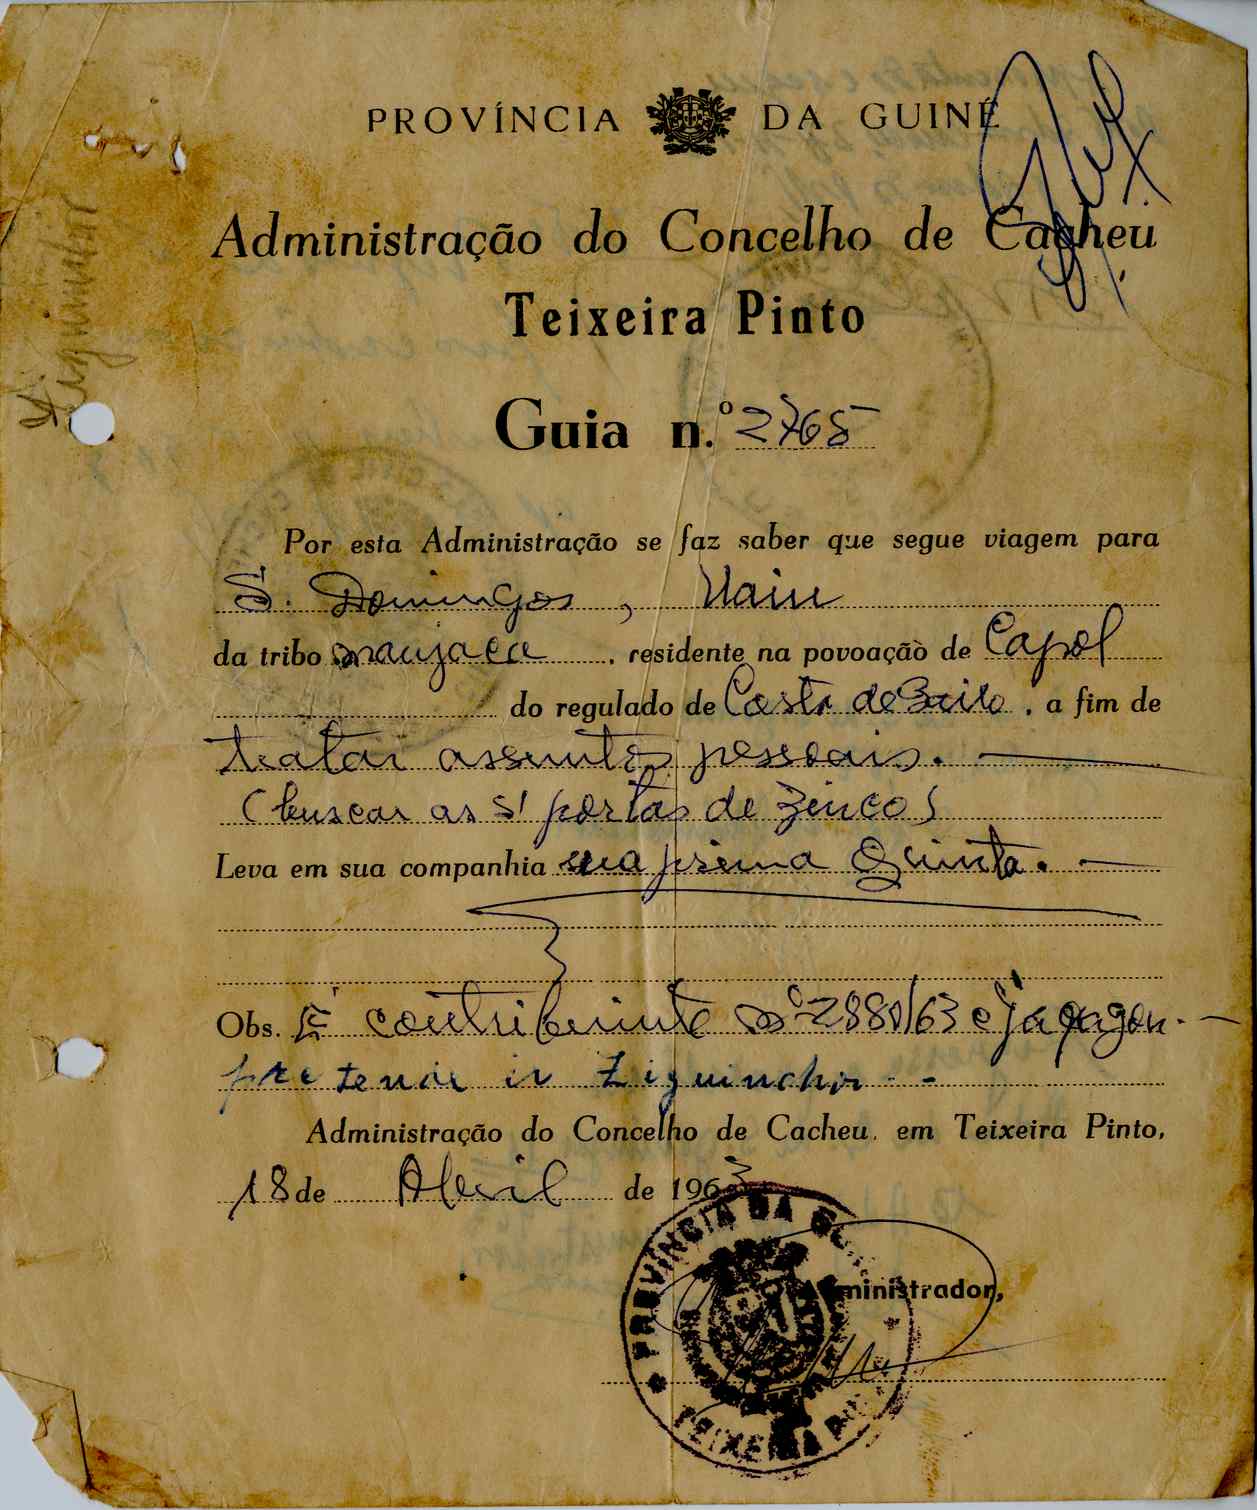 PROVÍNCIA DA GUINÉ
Administração do Concelho de Cacheu
Teixeira Pinto
Guia n.º 2765
Por esta Administração se faz saber que segue viagem para
S. Domingos, Uain
da tribo manjaca, residente na povoação de Capol
do regulado de Costa de Baixo, a fim de
tratar assuntos pessoais.
(buscar as s/ portas de zinco)
Leva em sua companhia sua prima Quinta.
Obs. É contribuinte nº 2880/63 e já pagou.
pretende ir Ziguinchor
Administração do Concelho de Cacheu, em Teixeira Pinto,
18 de Abril de 1963
Administrador,
PROVÍNCIA DA GUINÉ
TEIXEIRA PINTO
Ziguinchor